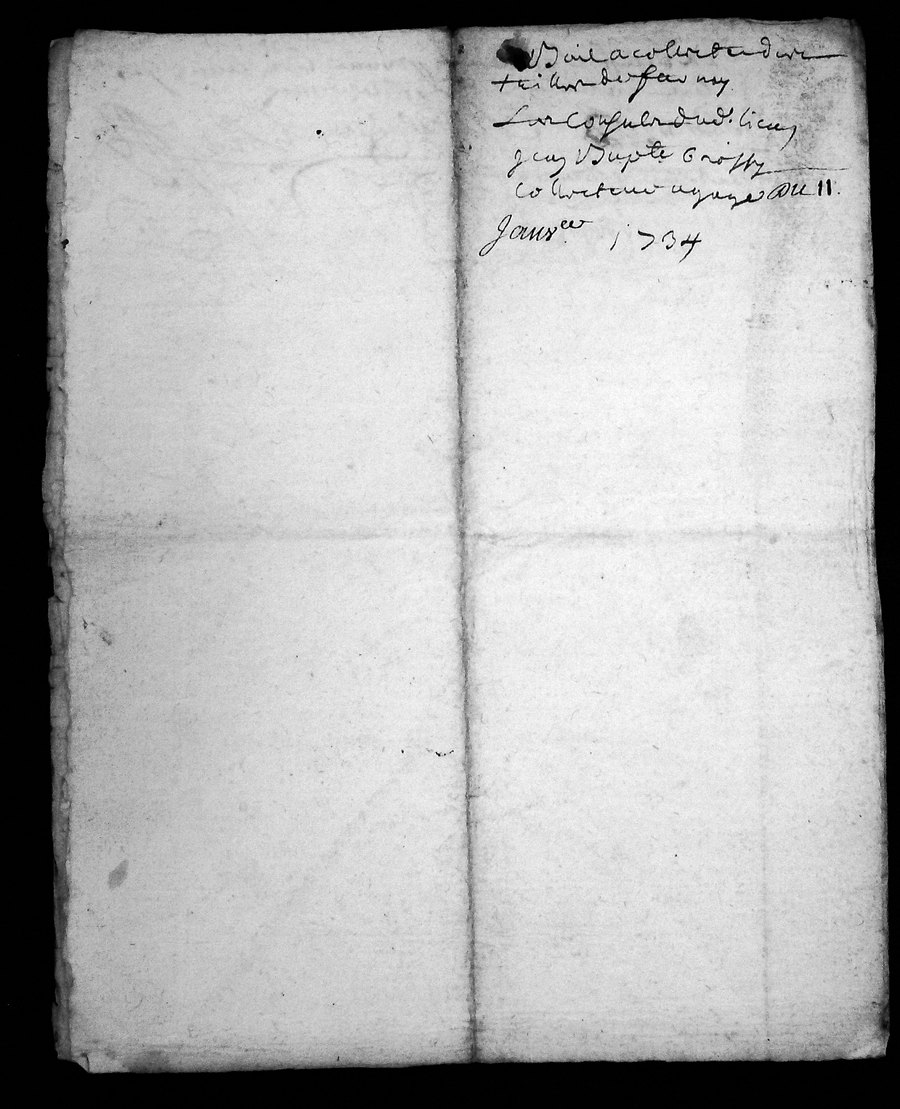 Bail a collecte des
tailles de
Les Consulz dud. lieu
Jean Bapte
Collecteur a gages Du 11.
Janver 1734